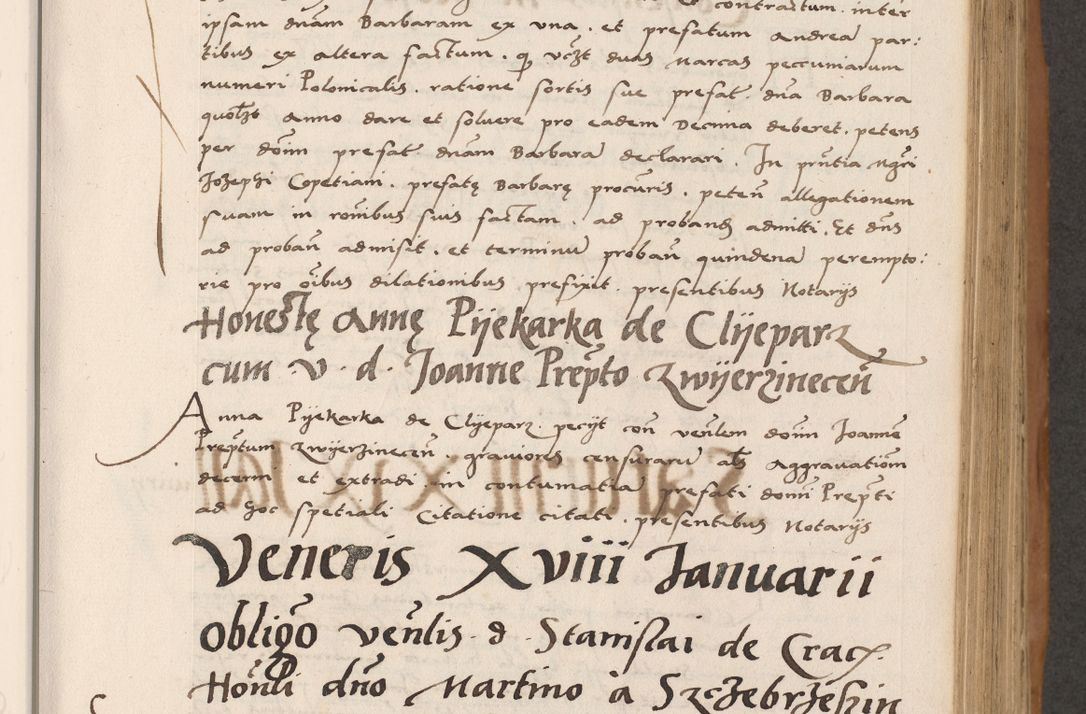 contractum inter
ipsam dnãm Barbaram ex vna . et prefatum Andreã par:
tibus ex altera factum . q̃ vczt duas Marcas peccuniarum
numeri Polonicalis . ratione sortis sue prefat. dna Barbara
quolzbt Anno dare et soluere pro eadem Decima deberet . petens
per dõim prefat. dnãm Barbarã declarari . In pñtia Mgri
Jozephi Copetiani . prefatę Barbarę procũris . peteñ allegationem
suam in rõnibus suis factam . ad proband admitti . Et dns
ad probañ admisit . et terminũ probañ quindenã perempto:
rie pro õibus dilationibus prefixit . presentibus Notarijs
Honestę Annę Pijekarka de Clijeparz
cum v . d . Joanne Prepto Zwijerzineceñ
Anna Pijekarka de Clijeparz . pecijt coñ veñlem doim Joannẽ
Preptum Zwijerzineceñ . grauiores censurarũ als Aggrauatiõm
decerni et extradi . in contumatiã prefati domi Prepti
ad hoc spetiali Citatione citati . presentibus Notarijs
Veneris Xviii Januarii
obligõ veñlis . d . Stanislai de Crac.
Hoñli dño Martino a Szczebrzeszin